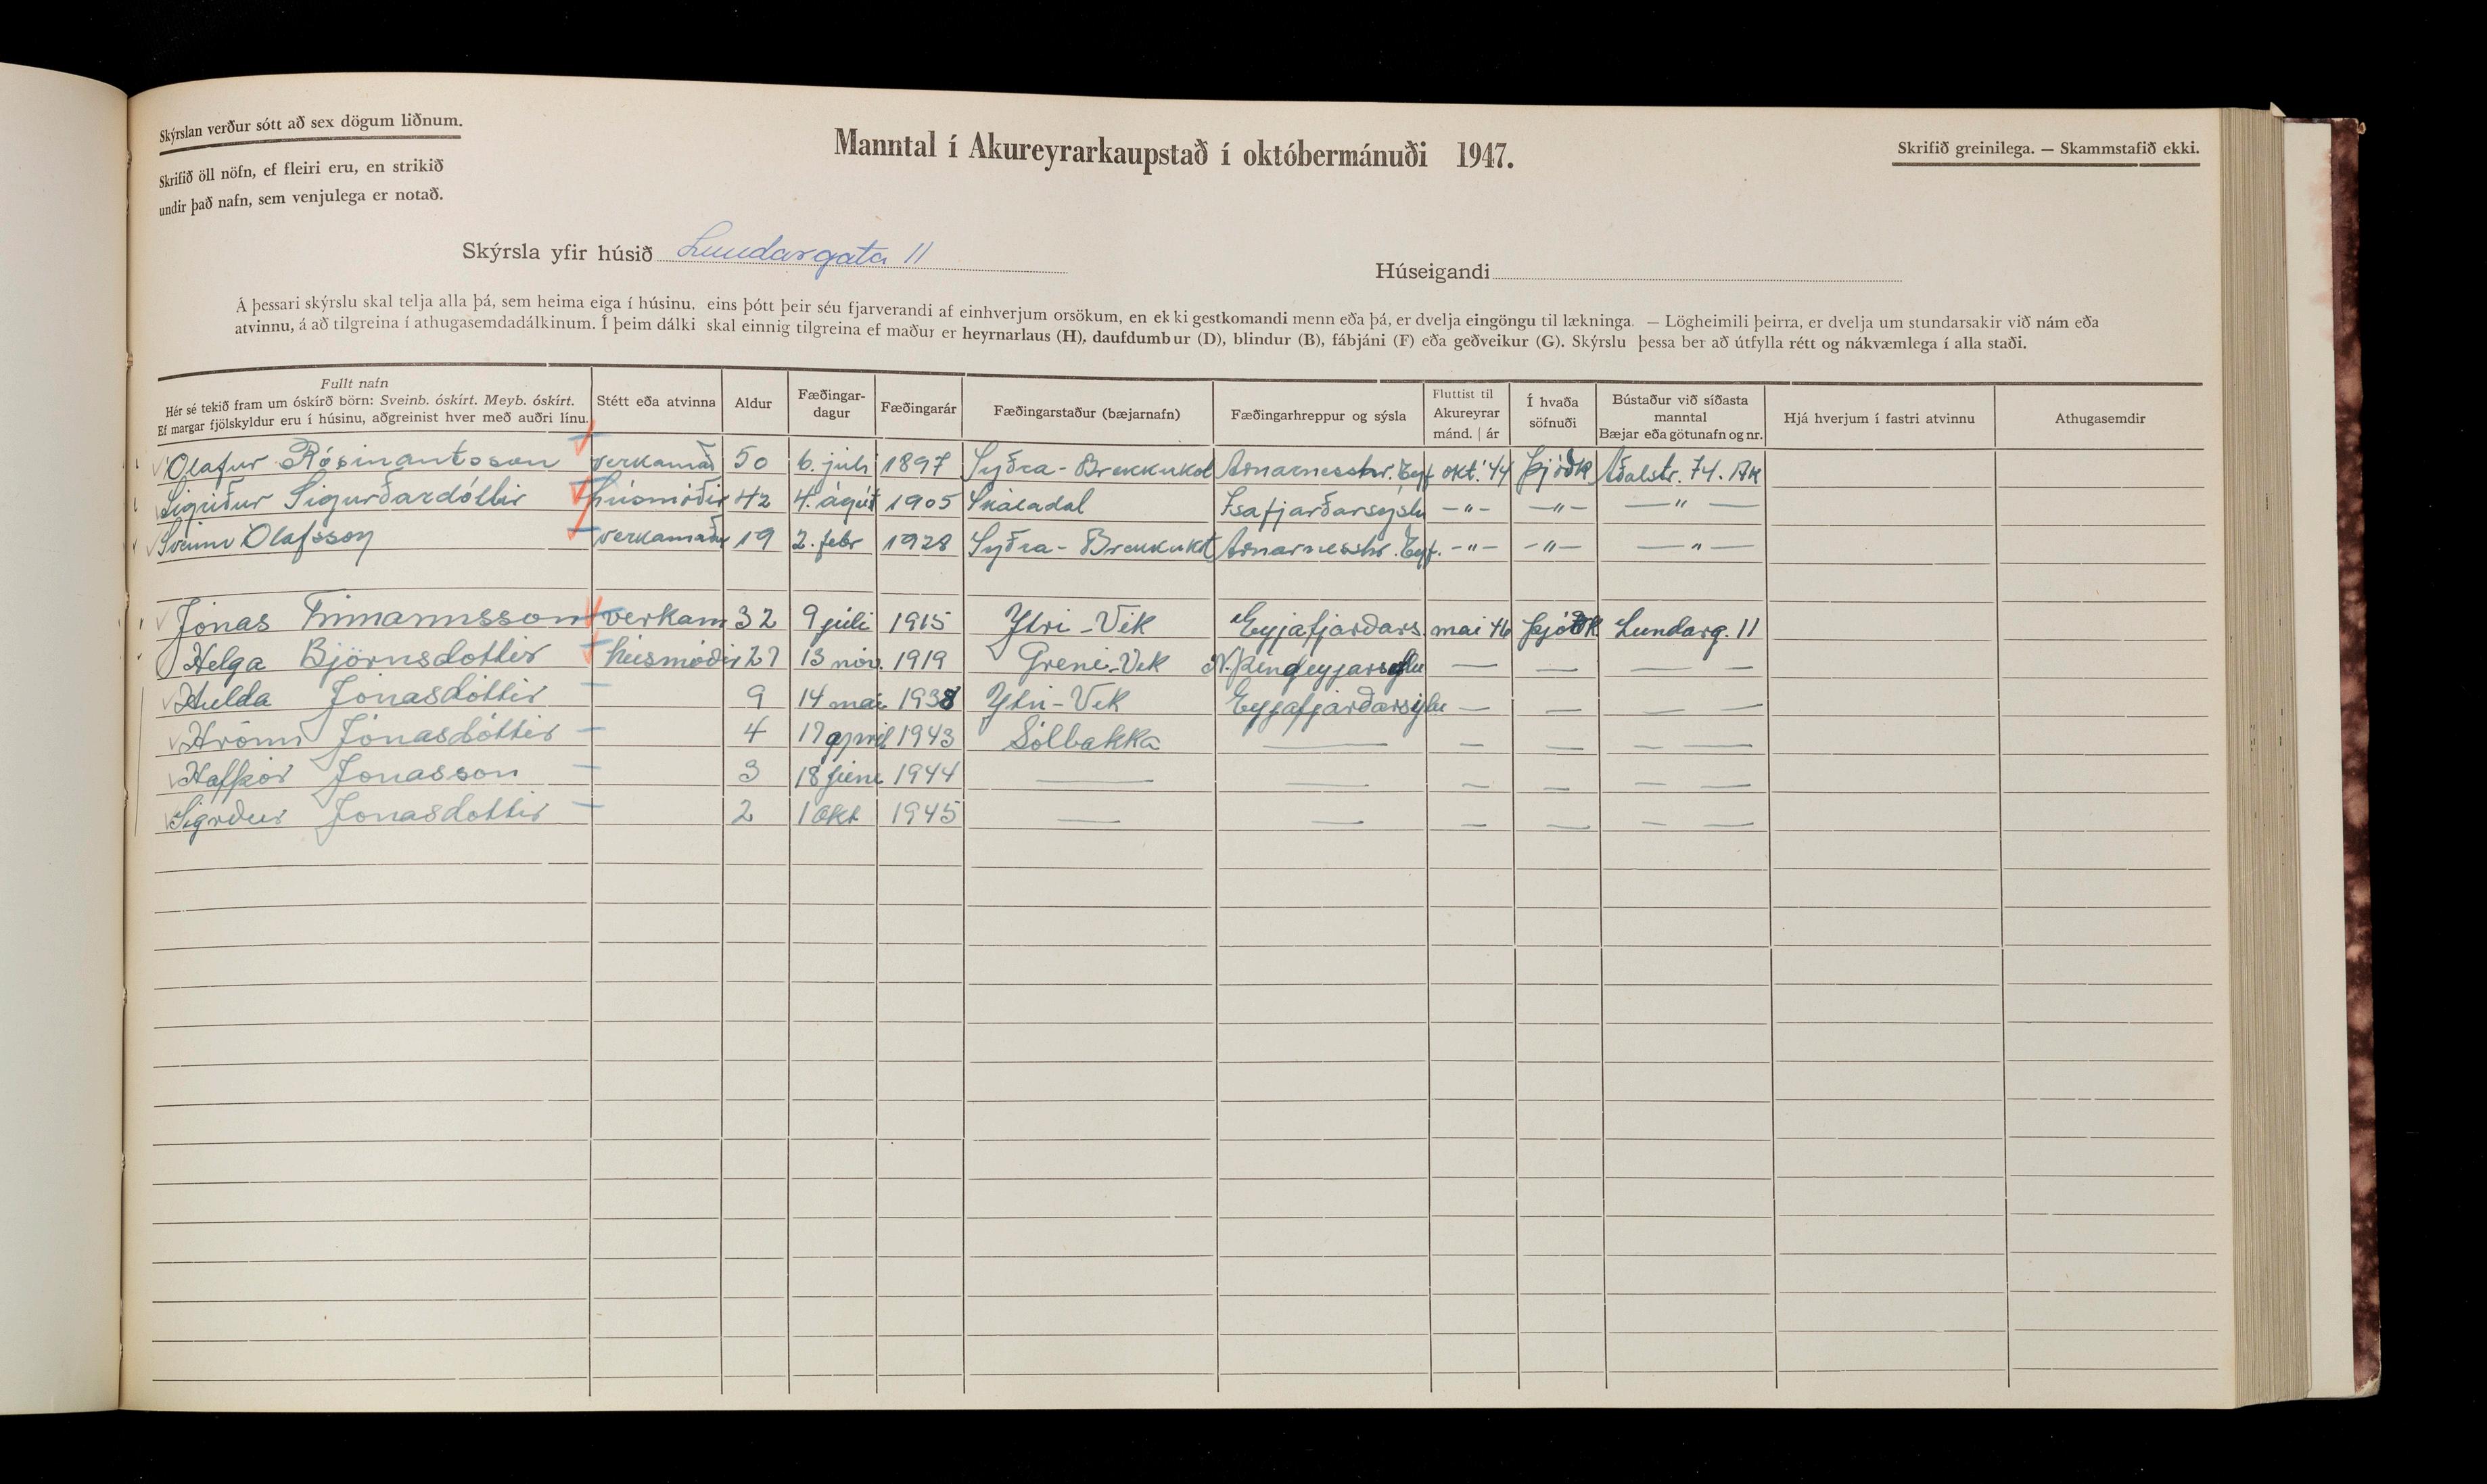 Skýrslan verður sótt að sex dögum liðnum.
Skrifið öll nöfn, ef fleiri eru, en strikið
undir það nafn, sem venjulega er notað.
Manntal í Akureyrarkaupstað í októbermánuði 1947.
Skrifið greinilega. — Skammstafið ekki.
Skýrsla yfir húsið Lundargata 11
Húseigandi
Á þessari skýrslu skal telja alla þá, sem heima eiga í húsinu. eins þótt þeir séu fjarverandi af einhverjum orsökum, en ekki gestkomandi menn eða þá, er dvelja eingöngu til lækninga. — Lögheimili þeirra, er dvelja um stundarsakir við nám eða
atvinnu, á að tilgreina í athugasemdadálkinum. Í þeim dálki skal einnig tilgreina ef maður er heyrnarlaus (H), daufdumbur (D), blindur (B), fábjáni (F) eða geðveikur (G). Skýrslu þessa ber að útfylla rétt og nákvæmlega í alla staði.
Fullt nafn
Hér sé tekið fram um óskírð börn: Sveinb. óskírt. Meyb. óskírt.
Ef margar fjölskyldur eru í húsinu, aðgreinist hver með auðri línu.
Stétt eða atvinna
Aldur
Fæðingar-
dagur
Fæðingarár
Fæðingarstaður (bæjarnafn)
Fæðingarhreppur og sýsla
Fluttist til
Akureyrar
mánd. | ár
Í hvaða
söfnuði
Bústaður við síðasta
manntal
Bæjar eða götunafn og nr.
Hjá hverjum í fastri atvinnu
Athugasemdir
Ólafur Rósinantsson verkamað 50 6. júlí 1897 Syðra-Brekkukot Arnarneshr. Eyf okt. '44 Þjóðk Aðalstr. 74. Ak
Sigríður Sigurðardóttir húsmóðir 42 4. ágúst 1905 Skáladal Ísafjarðarsýslu -"- -"- -"-
Sveinn Ólafsson verkamaður 19 2. febr 1928 Syðra-Brekkukot Arnarneshr. Eyf. -"- -"- -"-
Jónas Finnannsson verkam 32 9 júli 1915 Ytri-Vik Eyjafjarðars. mai 46 þjóðk Lundarg. 11
Helga Björnsdottir húsmóðir 27 13 nóv. 1919 Greni-Vik N. þingeyjarsyslu — — — —
Hulda Jónasdóttir 9 14 mai 1938 Ytri-Vik Eyjafjarðarsýslu — — — —
Hrönn Jónasdóttir 4 17 april 1943 Sólbakka — — — — —
Hafþór Jonasson 3 18 júni 1944 — — — — — —
Sigrður Jonasdottir 2 1 okt 1945 — — — — — —